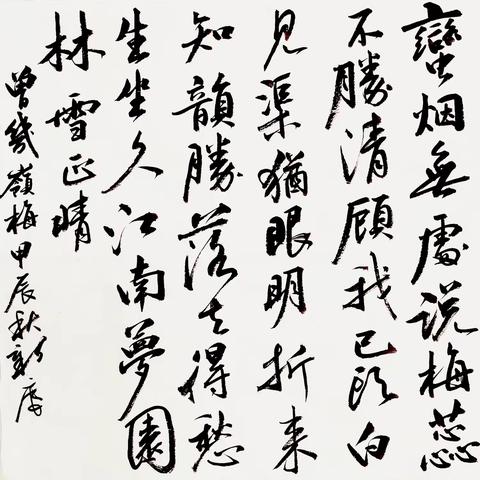 蠻烟無處説梅蕊
不勝清顧我已頭白
見渠猶眼明折来
知韻勝落去得愁
生坐久江南夢園
林雪正晴
曾幾嶺梅甲辰秋新